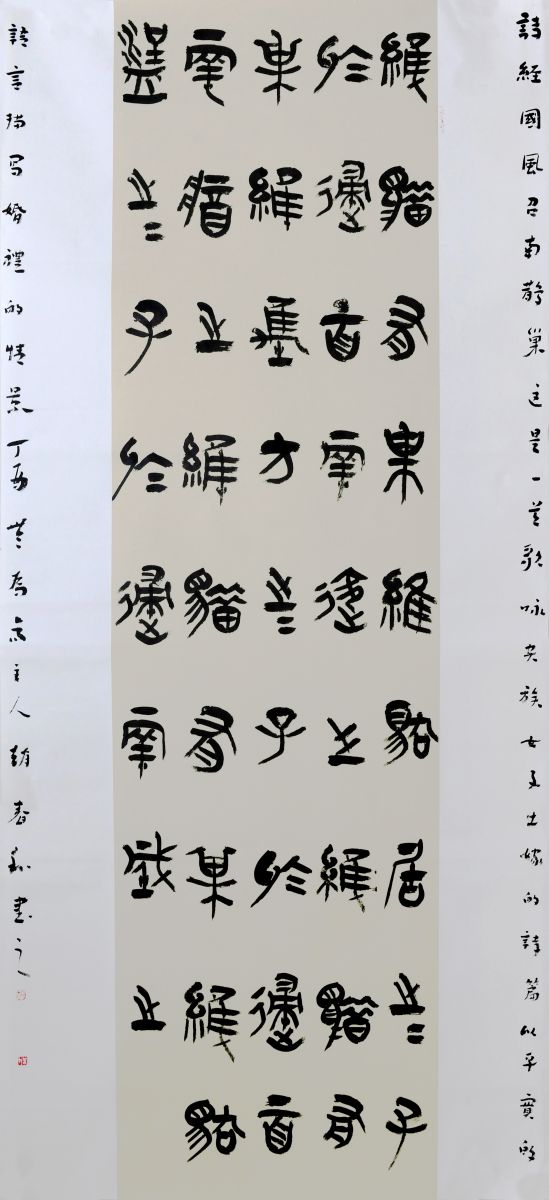 詩經國風召南鵲巢这是一首歌咏贵族女子出嫁的詩篇以平實的
維鵲有巢維鳩居之=子
于歸百兩御之維鵲有
巢維鳩方之=子于歸百
兩將之維鵲有巢維鳩
盈之=子于歸兩成之
語言描写婚禮的情景丁酉主人趙春書之